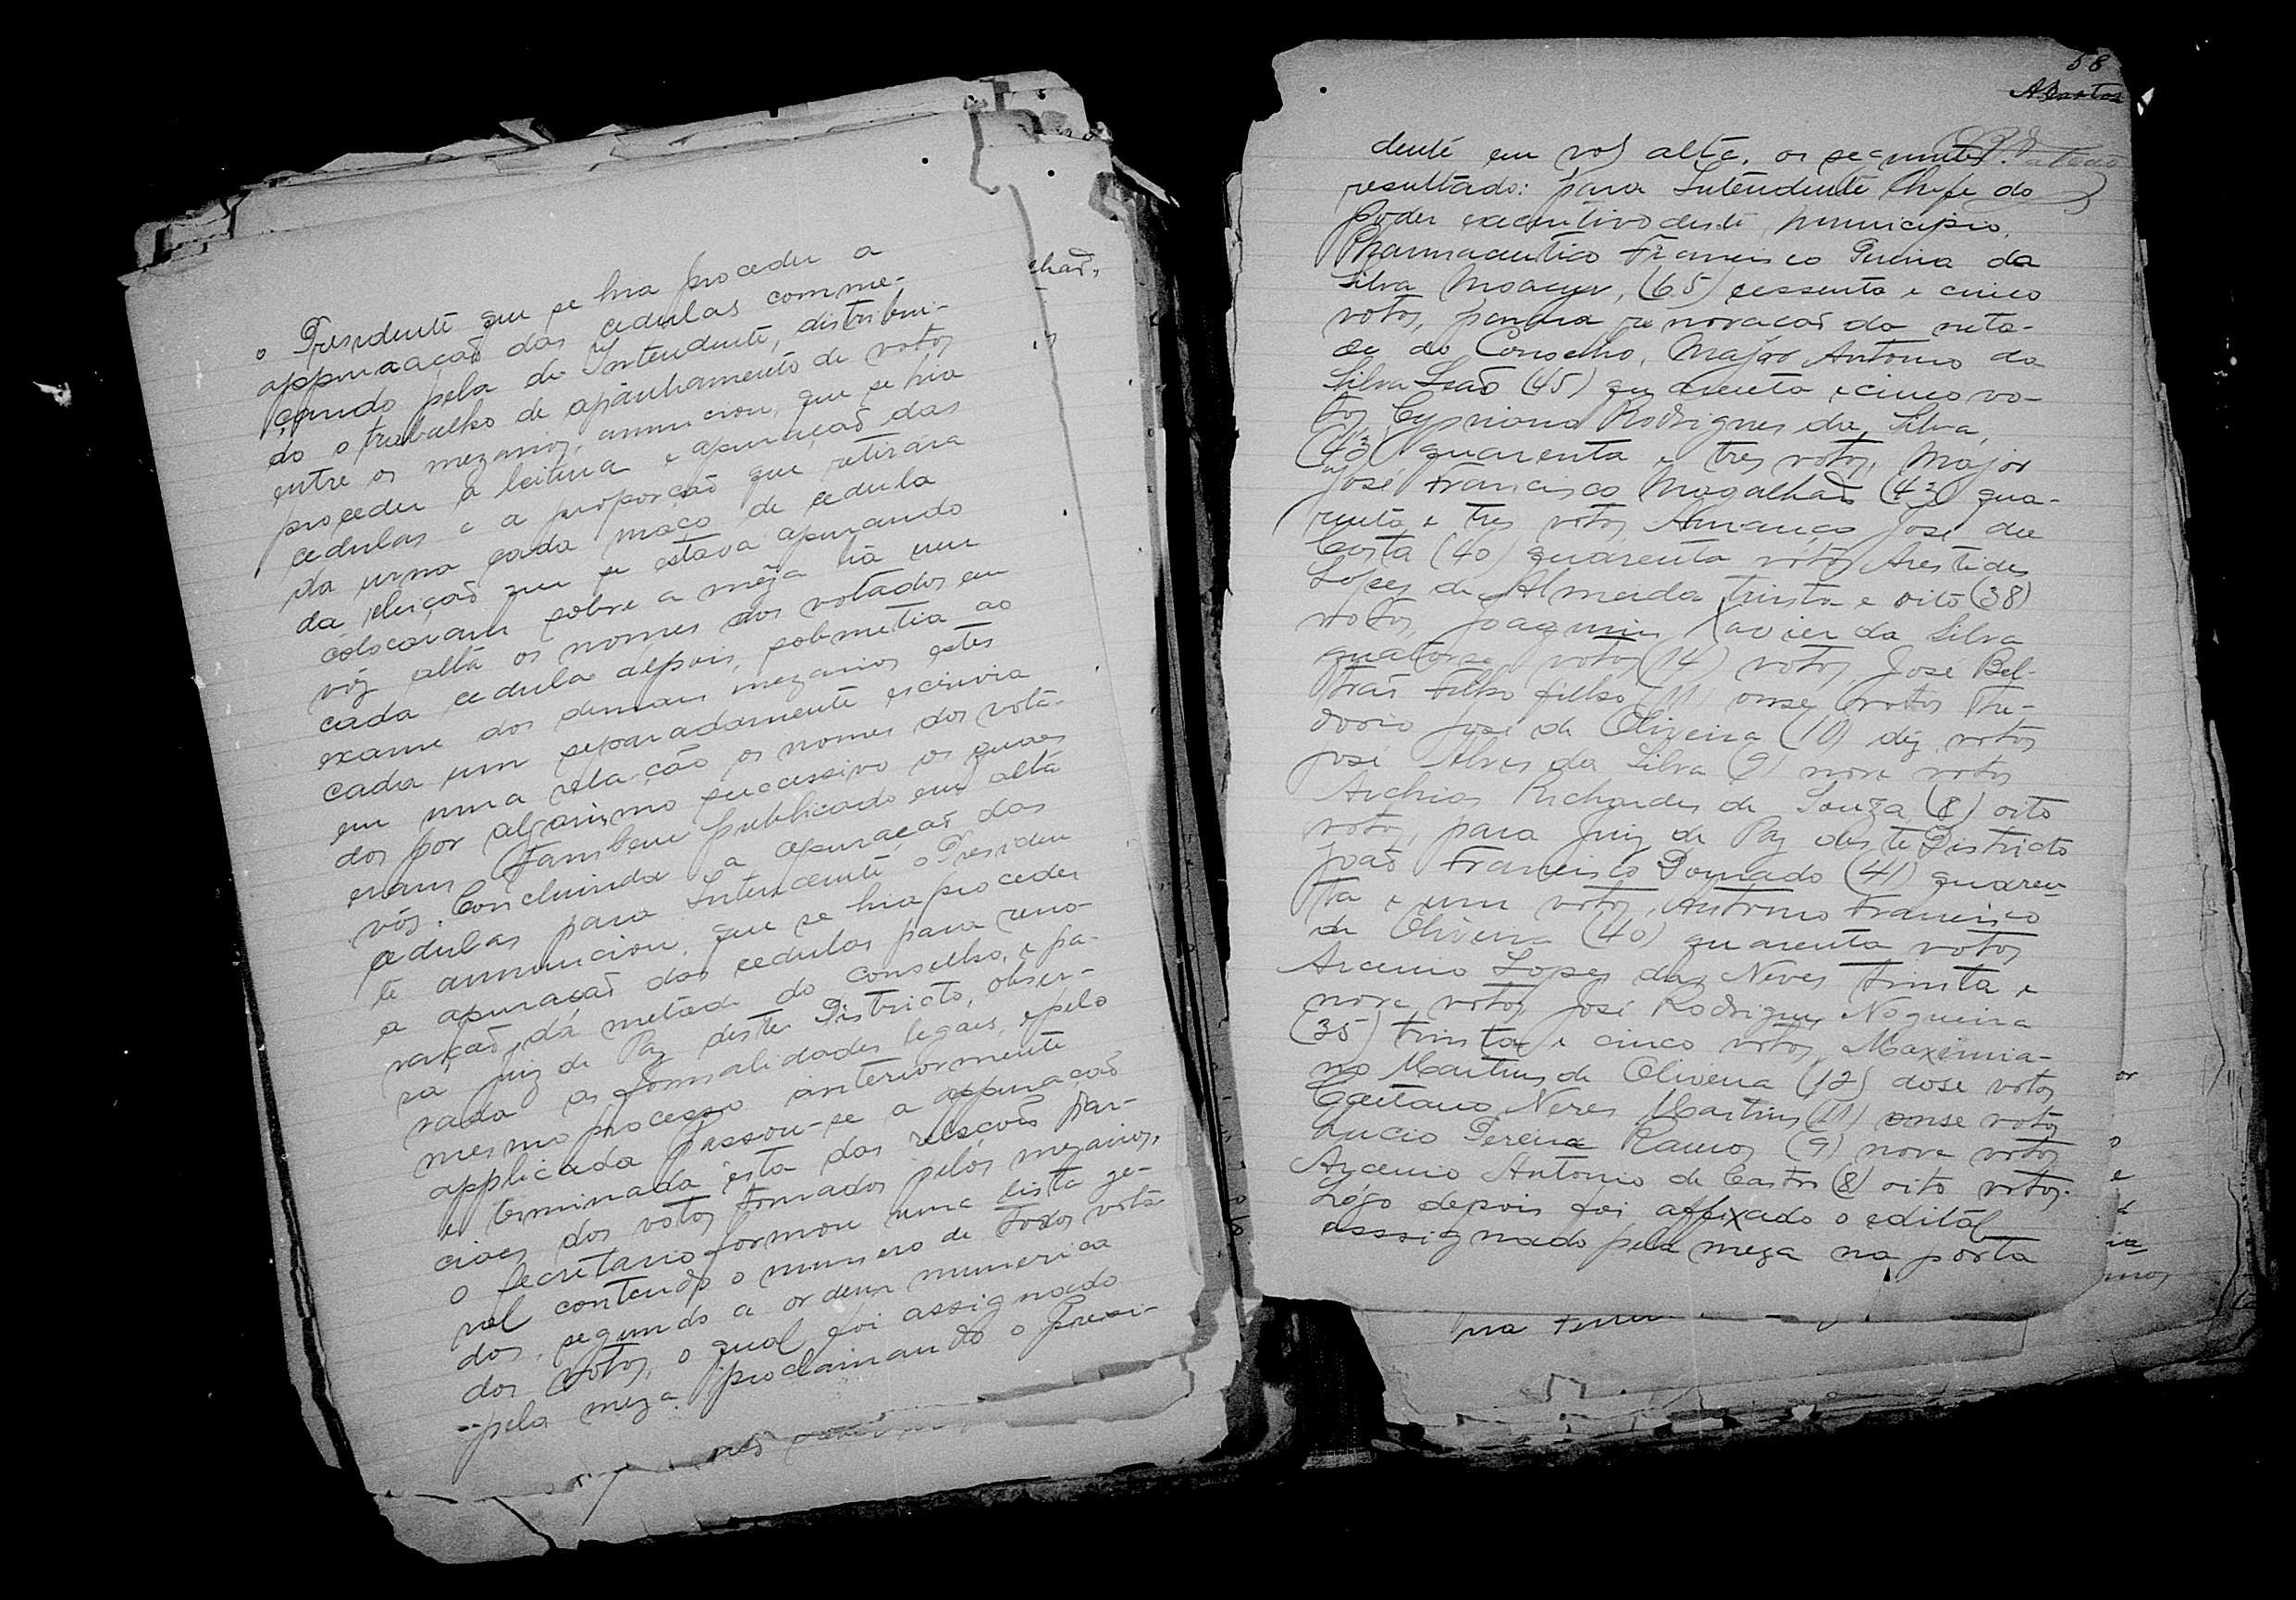 o Presidente que se hia proceder a
appuração das cedulas comme-
çando pela de Intendente, distribui-
do o trabalho de apanhamento de votos
entre os mezarios, annunciou, que se hia
proceder a leitura e apuração das
cedulas e a proporção que retirara
da urna cada maço de cedula
da eleição que se estava apurando
colocavam sobre a mêza lia um
vóz alta os nomes dos votados em
cada cedula depois, submetia ao
exame dos demais mezarios estes
cada um separadamente escrivia
em uma relação os nomes dos vota-
dos por algarismo successivo os quaes
eram tambem publicado em alta
vós. Concluinda a apuração das
cedulas para Intendente o Presiden
te annunciou, que se hia proceder
a apuração das cedulas para reno-
vação, da metade do conselho, e pa-
ra Juiz de Paz deste Districto, obser-
vada as formalidades legais, e pelo
mesmo processo anteriormente
applicada passou-se a appuração
e terminada ésta das relações par-
ciaes dos votos tomados pelos mezarios,
o Secretario formou uma lista ge-
ral contendo o numero de todos vota
dos, segundo a ordem numerica
dos votos, o qual foi assignado
pela meza proclamando o Presi-
58
ABastos
dente em vos alta, os seguintes
resultado: para Intendente Chefe do
Poder executivo deste municipio,
Pharmaceutico Francisco Pereira da
Silva Moacyr, (65) sessenta e cinco
votos, para a renovacaõ da meta-
de do Conselho, Major Antonio da
Silva Leaõ (45) quarenta e cinco vo-
tos, Cypriano Rodrigues da Silva,
(43) quarenta e tres votos, Major
José Francisco Magalhaes (43) qua-
renta e tres votos, Amanço José da
Costa (40) quarenta votos Arestides
Lopes de Almeida trinta e oito (38)
votos, Joaquim Xavier da Silva
quatorse votos (14) votos, José Bel-
traõ Filho filho (11) onse votos The-
dorio José de Oliveira (10) déz votos
José Alves da Silva (9) nove votos
Archias Richardes de Souza (8) oito
votos, para Juiz de Paz deste Districto
João Francisco Dourado (41) quaren
ta e um votos, Antonio Francisco
de Oliveira (40) quarenta votos
Arcenio Lopes das Neves trinta e
nove votos, José Rodrigues Nogueira
(35) trinta e cinco votos, Maximia-
no Martins de Oliveira (12) dose votos
Caetano Neres Martins (11) onse votos
Lucio Pereira Ramos (9) nove votos
Arcenio Antonio de Castro (8) oito votos.
Lógo depois foi affixado o editál
asssignado pela meza na porta